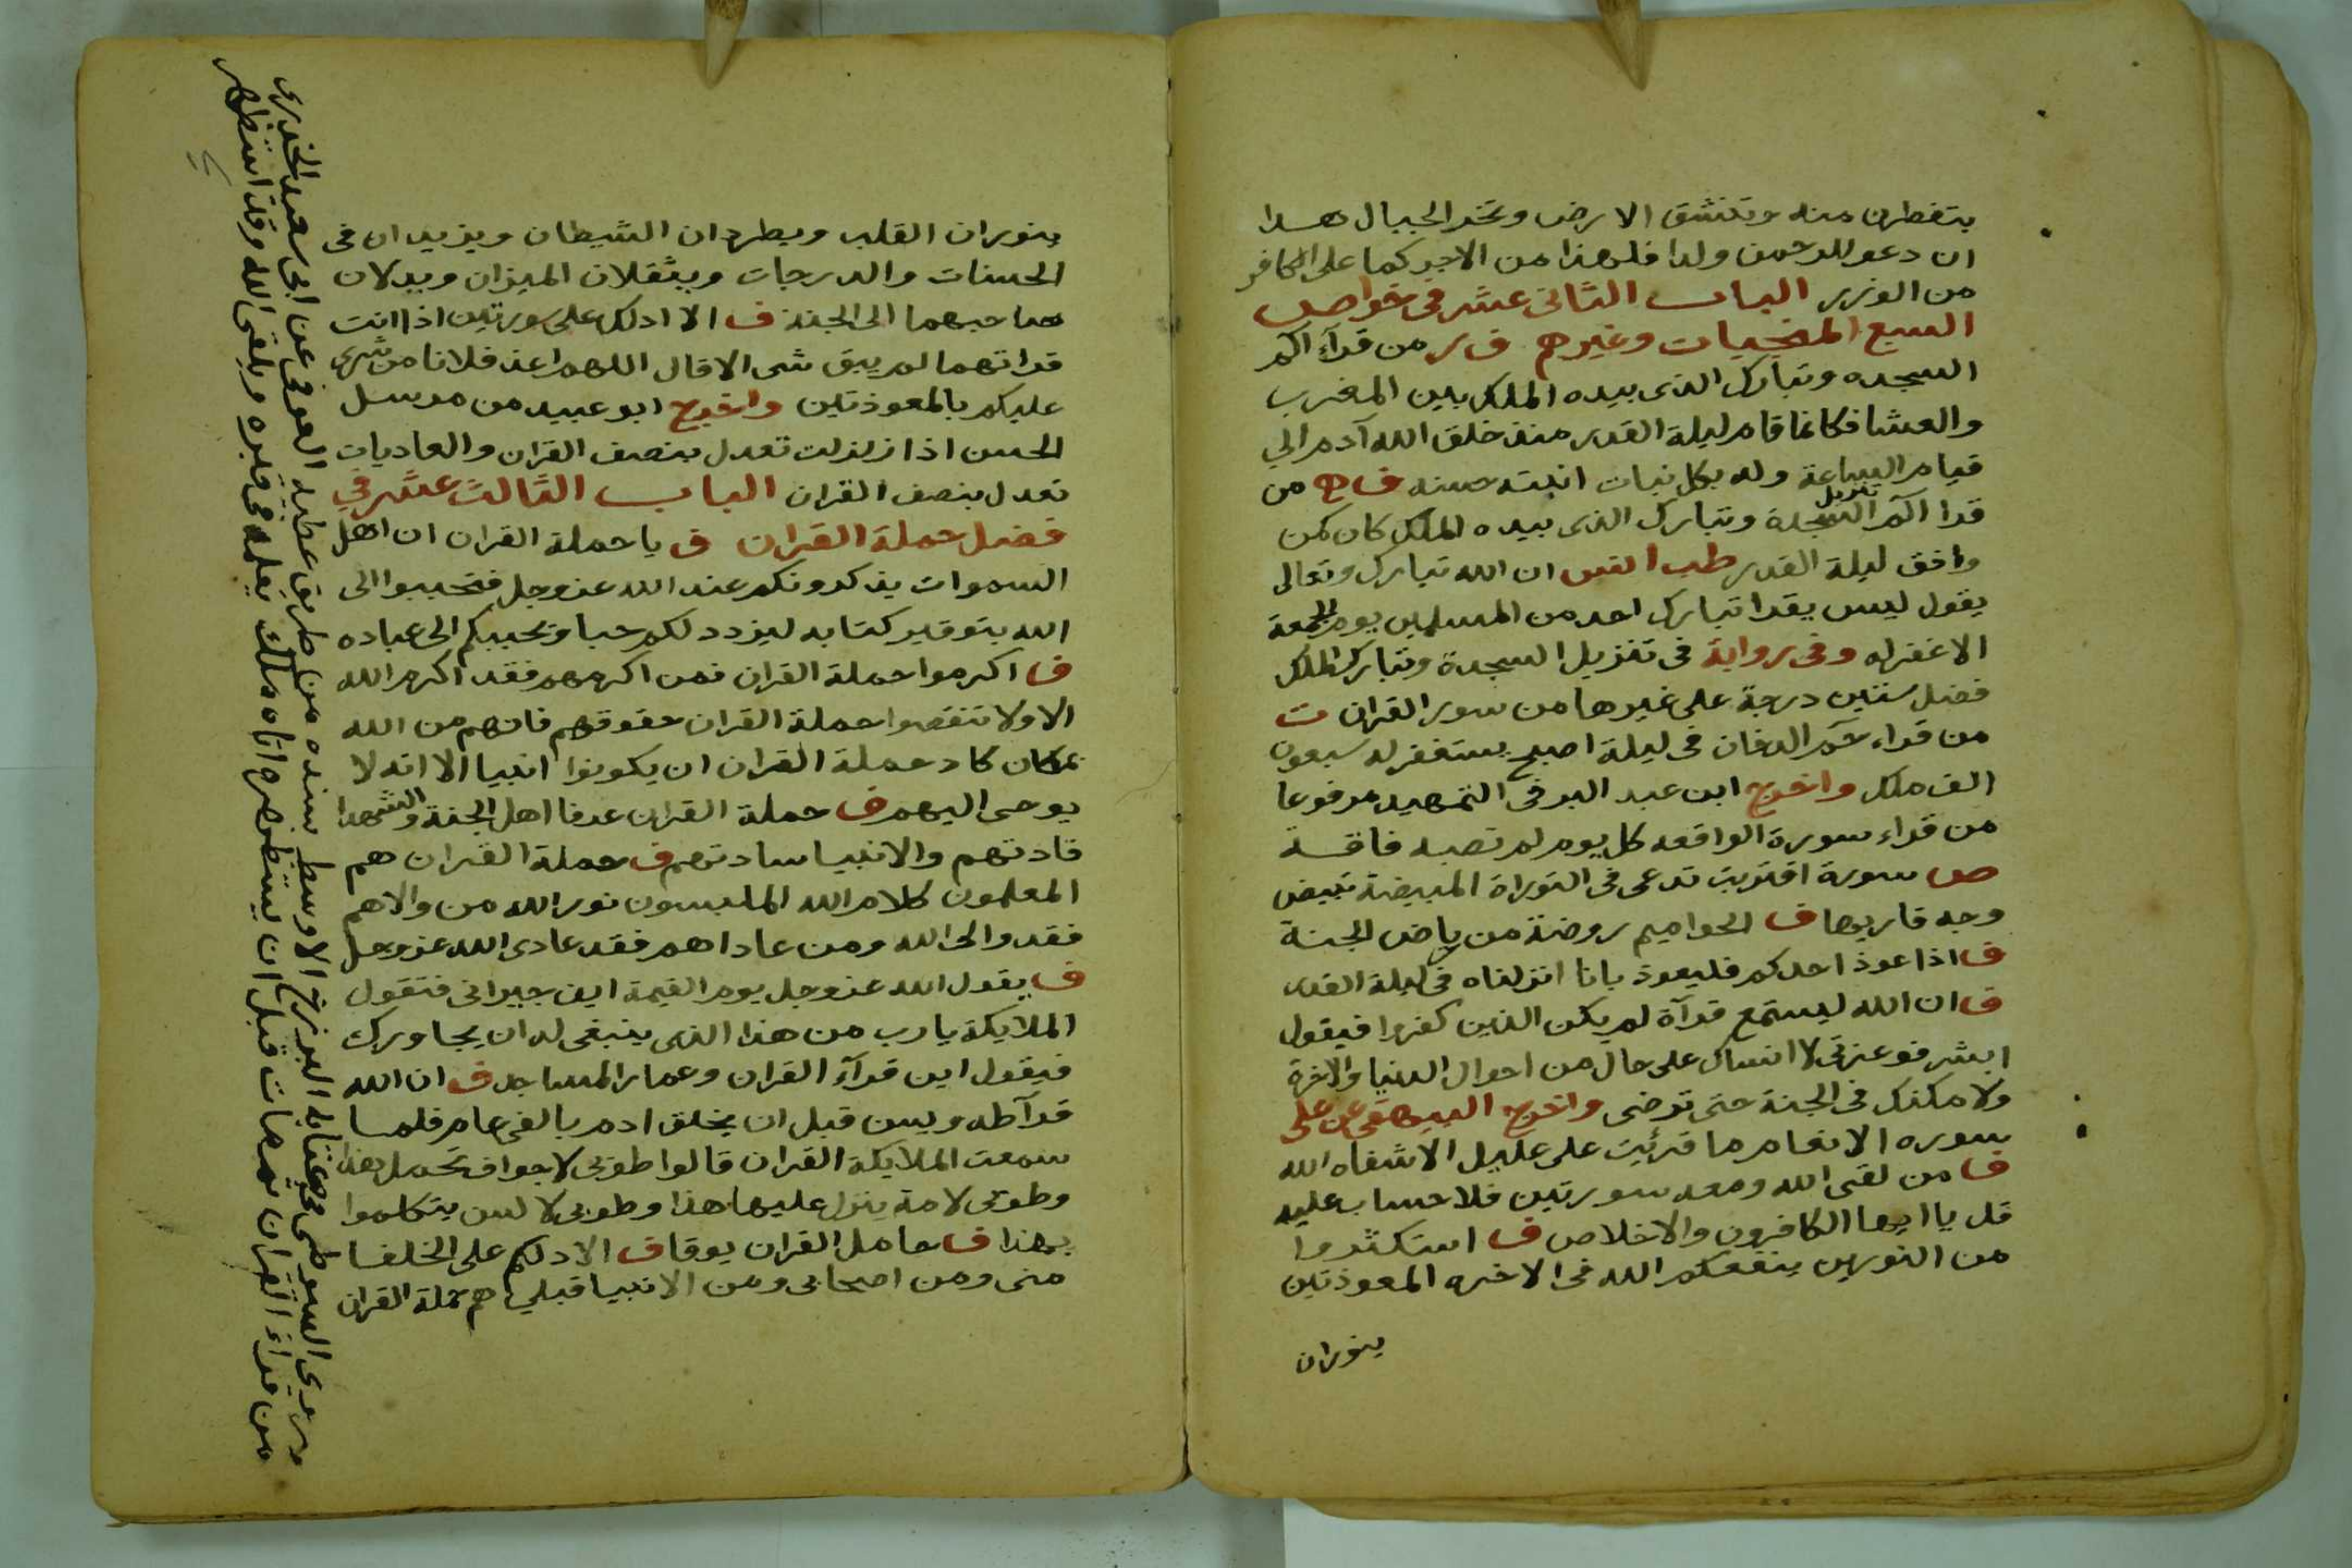 يتفطرن منه وتنشق الارض وتخر الجبال هدا
ان دعوا للرحمن ولدا فله هذا من الاجر كما على الكافر
من الوزر الباب الثانى عشر فى خواص
السبع المنجيات وغيرهم ف ر من قرآء الم
السجده وتبارك الذى بيده الملك بين المغرب
والعشا فكانما قام ليلة القدر منذ خلق الله آدم الي
قيام الساعة وله بكل نبات انبته حسنه ف من
قرا الم تنزيل السجدة وتبارك الذى بيده الملك كان كمن
وافق ليلة القدر طب انس ان الله تبارك وتعالى
يقول ليس يقرا تبارك احد من المسلمين يوم الجمعة
الا غفر له وفى رواية فى تنزيل السجدة وتبارك الملك
فضل ستين درجة على غيرها من سور القران ت
من قراء حم الدخان فى ليلة اصبح يستغفر له سبعون
الف ملك واخرج ابن عبد البر فى التمهيد مرفوعا
من قراء سورة الواقعه كل يوم لم تصبه فاقة
ص سورة اقتربت تدعى فى التوراة المبيضة تبيض
وجه قاريها ف الحواميم روضة من رياض الجنة
ف اذا عوذ احدكم فليعوذ بانا انزلناه فى ليلة القدر
ف ان الله ليستمع قرآة لم يكن الذين كفروا فيقول
ابشر فوعزتى لا انساك على حال من احوال الدنيا والاخرة
ولامكننك فى الجنة حتى ترضى واخرج البيهقى عن على
سوره الانعام ما قرئيت على عليل الا شفاه الله
ف من لقى الله ومعه سورتين فلا حساب عليه
قل يا ايها الكافرون والاخلاص ف استكثروا
من النورين ينفعكم الله فى الاخره المعوذتين
ينوران
ينوران القلب ويطردان الشيطان ويزيدان فى
الحسنات والدرجات ويثقلان الميزان ويدلان
صاحبهما الى الجنة ف الا ادلك على سورتين اذا انت
قراتهما لم يبق شى الا قال اللهم اعذ فلانا من شرى
عليكم بالمعوذتين واخرج ابو عبيد من مرسل
الحسن اذا زلزلت تعدل بنصف القران والعاديات
تعدل بنصف القران الباب الثالث عشر فى
فضل حملة القران ف يا حملة القران ان اهل
السموات يذكرونكم عند الله عز وجل فتحببوا الى
الله بتوقير كتابه ليزدد لكم حبا ويحببكم الى عباده
ف اكرموا حملة القران فمن اكرمهم فقد اكرم الله
الا ولا تنقصوا حملة القران حقوقهم فانهم من الله
بمكان كاد حملة القران ان يكونوا انبيا الا انه لا
يوحى اليهم ف حملة القران عرفا اهل الجنة والشهدا
قادتهم والانبيا سادتهم ف حملة القران هم
المعلمون كلام الله الملبسون نور الله من والاهم
فقد والى الله ومن عاداهم فقد عادى الله عز وجل
ف يقول الله عز وجل يوم القيمة اين جيرانى فتقول
الملايكة يا رب من هذا الذى ينبغى له ان يجاورك
فيقول اين قرآء القران وعمار المساجد ف ان الله
قرآ طه ويس قبل ان يخلق ادم بالفى عام فلما
سمعت الملايكة القران قالوا طوبى لاجواف تحمل هذا
وطوبى لامة ينزل عليها هذا وطوبى لالسن يتكلموا
بهذا ف حامل القران يوقا ف الا ادلكم على الخلفا
منى ومن اصحابى ومن الانبيا قبلي هم حملة القران
وروى السيوطى فى كتابه البرزخ الاوسط بسنده من طريق عطيه العوفى عن ابى سعيد الخدرى
من قراء القران ثم مات قبل ان يستظهره اتاه ملك يعلمه فى قبره ويلقى الله وقد استظهره